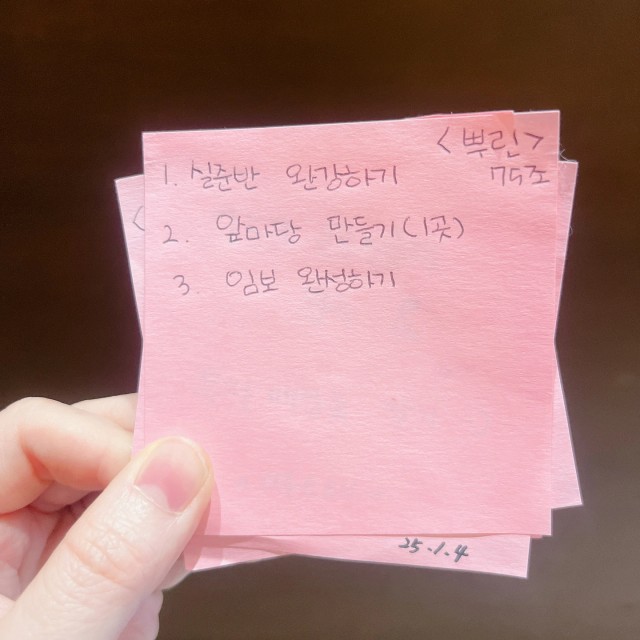 <뿌린>
75조
1. 실준반 완강하기
2. 앞마당 만들기(1곳)
3. 임보 완성하기
25.1.4